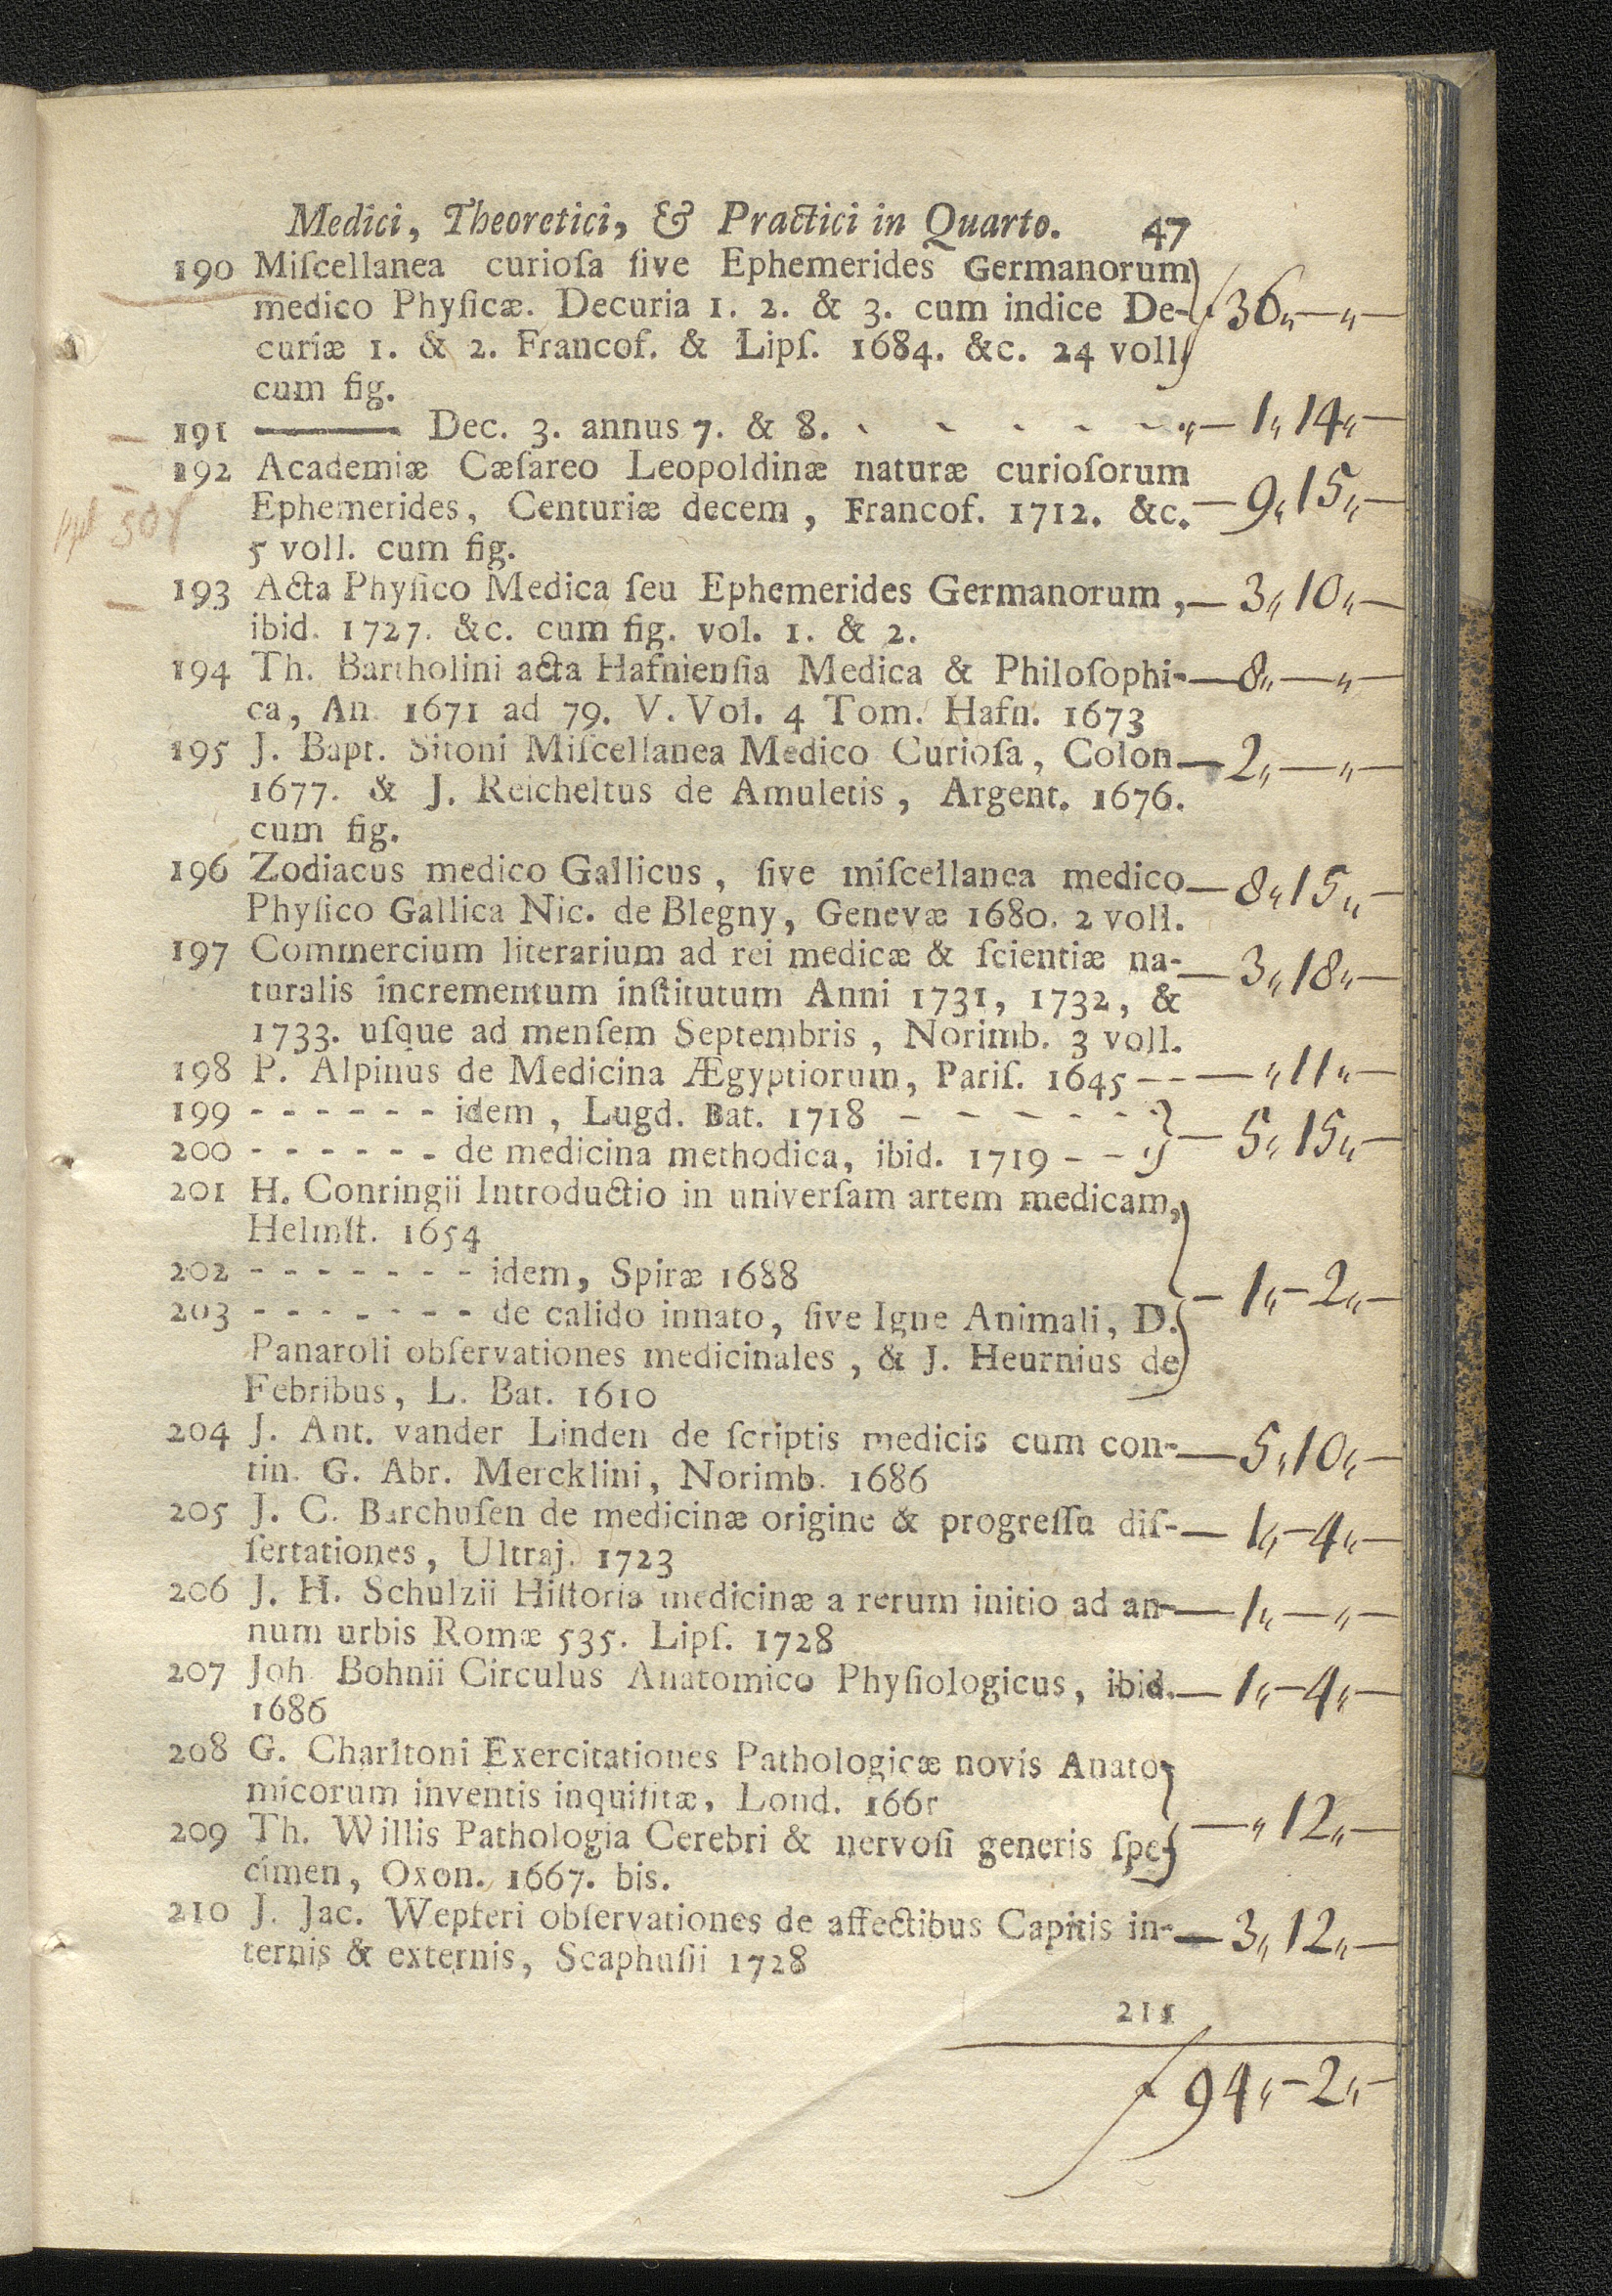 Medici, Theoretici, & Practici in Quarto. 47
190 Miſcellanea curioſa ſive Ephemerides Germanorum
medico Phyſicæ. Decuria 1. 2. & 3. cum indice De- ƒ 36〃—〃—
curiæ 1. & 2. Francof. & Lipſ. 1684. &c. 24 voll.
cum fig.
191 ——— Dec. 3. annus 7. & 8. - - - - - - 〃— 1〃14〃—
192 Academiæ Cæſareo Leopoldinæ naturæ curioſorum
Ephemerides, Centuriæ decem, Francof. 1712. &c. — 9〃15〃—
5 voll. cum fig.
193 Acta Phyſico Medica ſeu Ephemerides Germanorum, — 3〃10〃—
ibid. 1727. &c. cum fig. vol. 1. & 2.
194 Th. Bartholini acta Hafnienſia Medica & Philoſophi- — 8〃—〃—
ca, An. 1671 ad 79. V. Vol. 4 Tom. Hafn. 1673
195 J. Bapt. Sitoni Miſcellanea Medico Curioſa, Colon — 2〃—〃—
1677. & J. Reicheltus de Amuletis, Argent. 1676.
cum fig.
196 Zodiacus medico Gallicus, ſive miſcellanea medico — 8〃15〃—
Phyſico Gallica Nic. de Blegny, Genevæ 1680. 2 voll.
197 Commercium literarium ad rei medicæ & ſcientiæ na- — 3〃18〃—
turalis incrementum inſtitutum Anni 1731, 1732, &
1733. uſque ad menſem Septembris, Norimb. 3 voll.
198 P. Alpinus de Medicina Ægyptiorum, Pariſ. 1645 - - — 〃11〃—
199 - - - - - - idem, Lugd. Bat. 1718 - - - - - -
200 - - - - - - de medicina methodica, ibid. 1719 - - } — 5〃15〃—
201 H. Conringii Introductio in univerſam artem medicam,
Helmſt. 1654
202 - - - - - - - idem, Spiræ 1688
203 - - - - - - - de calido innato, ſive Igne Animali, D. } — 1〃—2〃—
Panaroli obſervationes medicinales, & J. Heurnius de
Febribus, L. Bat. 1610
204 J. Ant. vander Linden de ſcriptis medicis cum con- — 5〃10〃—
tin. G. Abr. Mercklini, Norimb. 1686
205 J. C. Barchuſen de medicinæ origine & progreſſu diſ- — 1〃—4〃—
ſertationes, Ultraj. 1723
206 J. H. Schulzii Hiſtoria medicinæ a rerum initio ad an- — 1〃—〃—
num urbis Romæ 535. Lipſ. 1728
207 Joh. Bohnii Circulus Anatomico Phyſiologicus, ibid. — 1〃—4〃—
1686
208 G. Charltoni Exercitationes Pathologicæ novis Anato-
micorum inventis inquiſitæ, Lond. 1661
209 Th. Willis Pathologia Cerebri & nervoſi generis ſpe- } — 〃12〃—
cimen, Oxon. 1667. bis.
210 J. Jac. Wepferi obſervationes de affectibus Capitis in- — 3〃12〃—
ternis & externis, Scaphuſii 1728
211
ƒ 94〃—2〃—